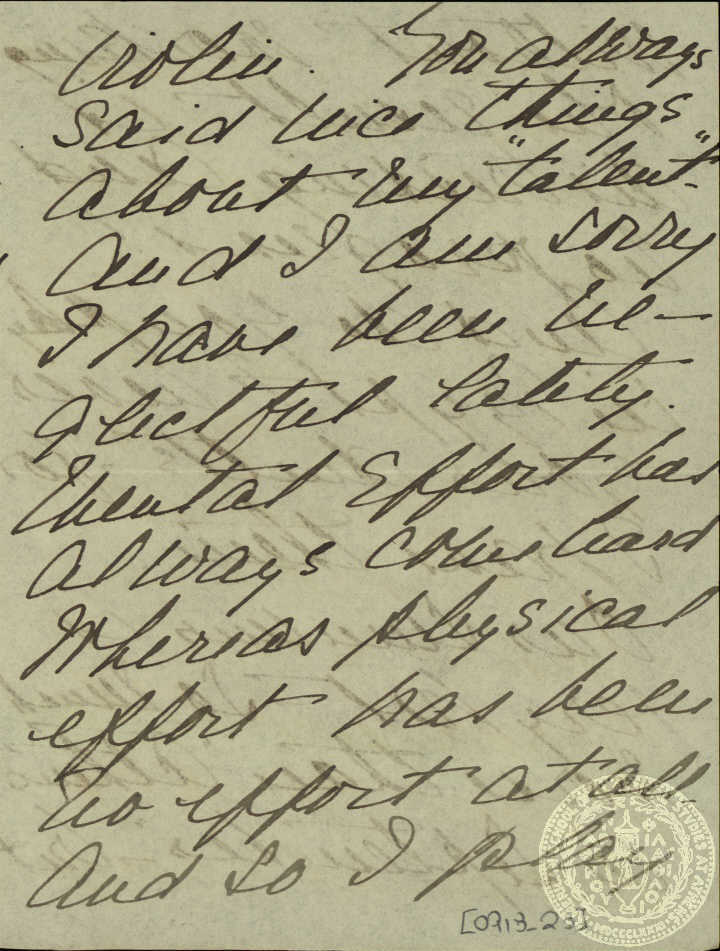 violin. You always
said nice things
about my "talent"
and I am sorry
I have been ne-
glectful lately.
Mental effort has
always come hard
whereas physical
effort has been
no effort at all.
And so I play
[0713_23]